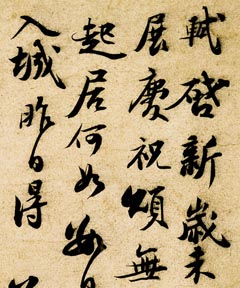 軾啓新歲未
展慶祝頌無
起居何如數日
入城昨日得